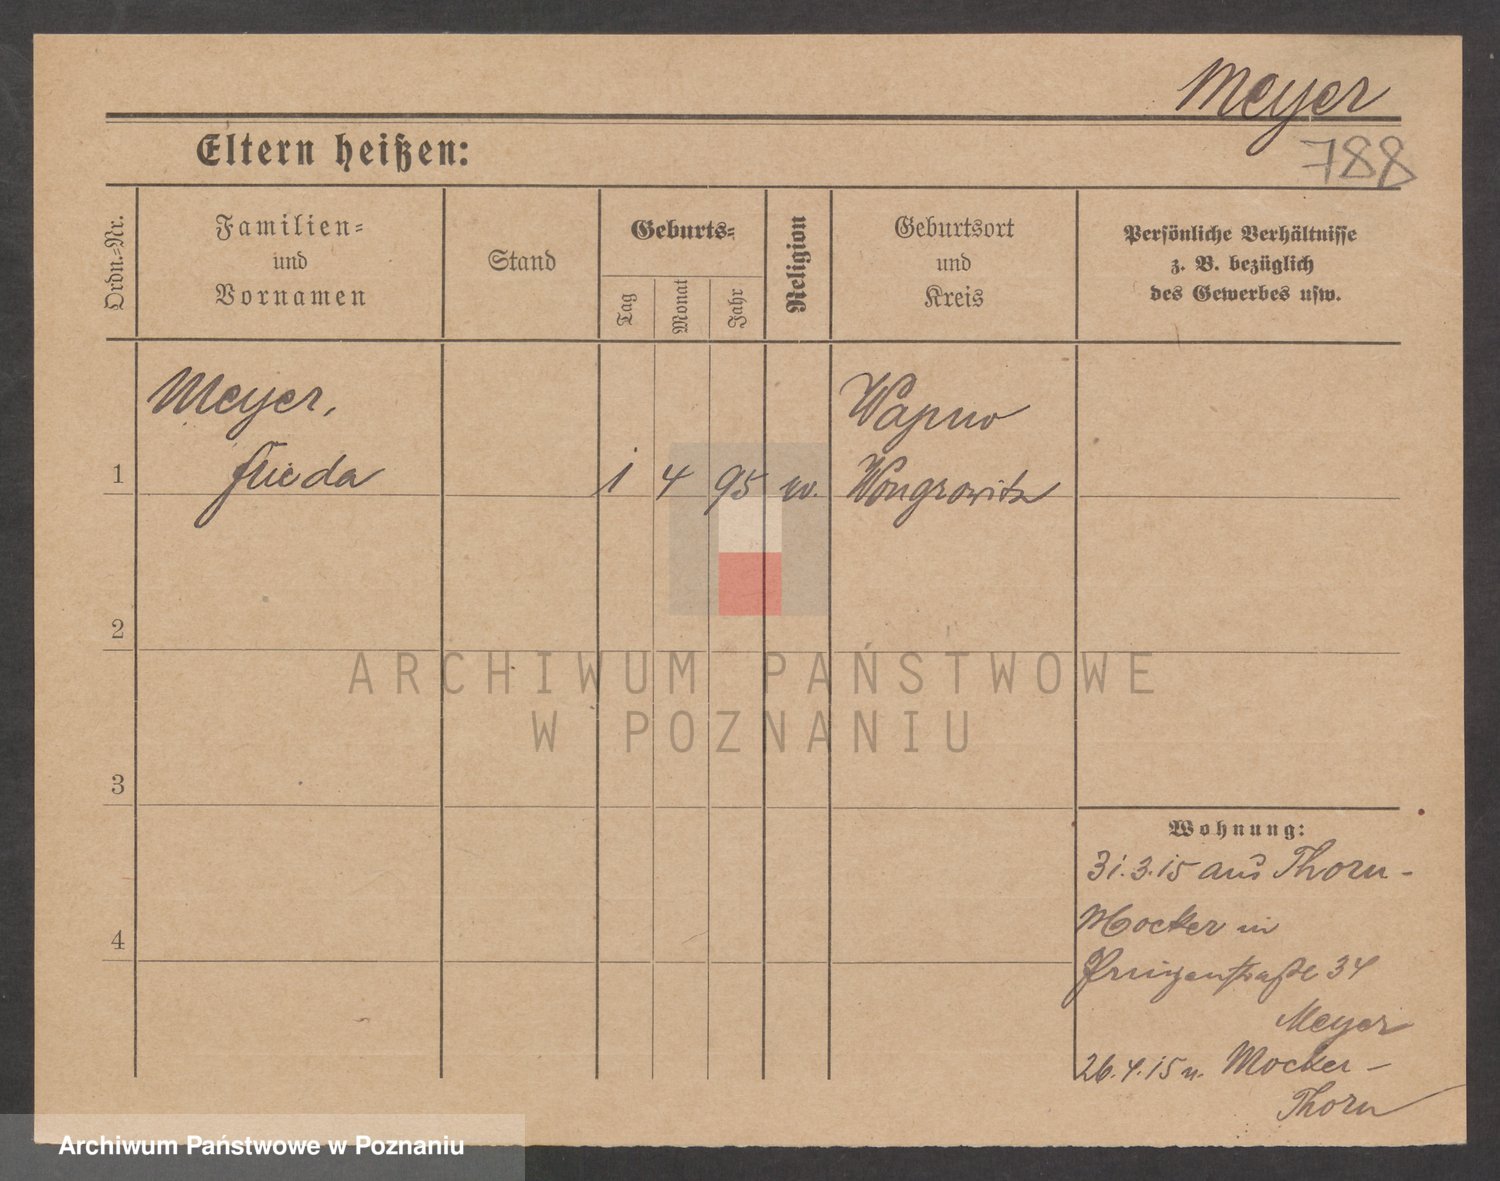 Meyer
788
Eltern heißen:
Ordn.-Nr.
Familien-
und
Vornamen
Stand
Geburts-
Tag
Monat
Jahr
Religion
Geburtsort
und
Kreis
Persönliche Verhältnisse
z. B. bezüglich
des Gewerbes usw.
Meyer,
Wapno
1 Frieda 1 4 95 w. Wongrowitz
2
3
4
Wohnung:
31.3.15 aus Thorn-
Mocker in
Prinzenstraße 34
Meyer
26.4.15 n. Mocker-
Thorn
ARCHIWUM PAŃSTWOWE
W POZNANIU
Archiwum Państwowe w Poznaniu